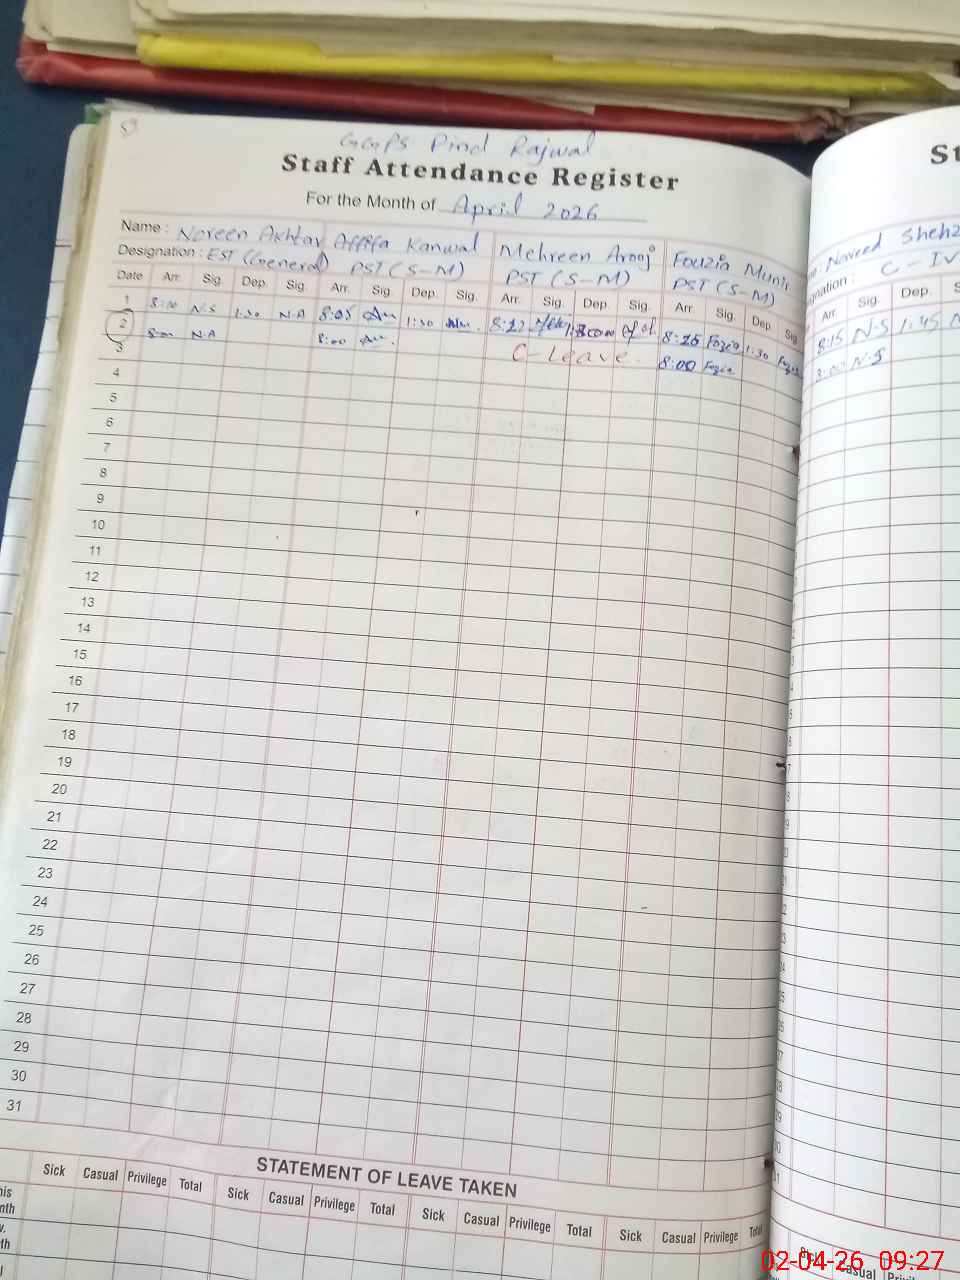 59
GGPS Pind Rajwal
Staff Attendance Register
For the Month of April 2026
Name : Noreen Akhtar Affifa Kanwal Mehreen Arooj Fouzia Munir
Designation : EST (General) PST (S-M) PST (S-M) PST (S-M)
Date Arr. Sig. Dep. Sig. Arr. Sig. Dep. Sig. Arr. Sig. Dep. Sig. Arr Sig. Dep Sig.
1 8:00 N.S 1:30 N.A 8:05 1:30 8:27 8:25 Fozia 1:30 Fozia
2 8:00 N.A 8:00 C-Leave. 8:00 Fozia
3
4
5
6
7
8
9
10
11
12
13
14
15
16
17
18
19
20
21
22
23
24
25
26
27
28
29
30
31
STATEMENT OF LEAVE TAKEN
Sick Casual Privilege Total Sick Casual Privilege Total Sick Casual Privilege Total Sick Casual Privilege Total
Naveed Shehz
C-IV
Arr. Sig. Dep.
8:15 N-S 1:45 N
8:00 N-S
Sick Casual
02-04-26 09:27